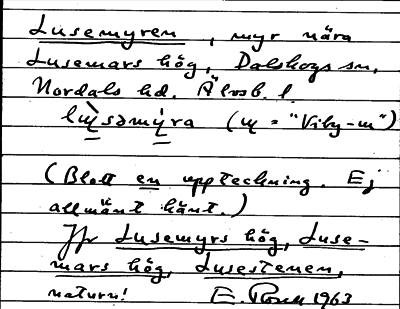 Lusemyren, myr nära
Lusemars hög, Dalskogs sn,
Nordals hd. Älvsb. l.
(ɰ = "Viby-ɰ")
(Blott en uppteckning. Ej
allmänt känt.)
Jfr Lusemyrs hög, Luse-
mars hög, Lusestenen,
naturn! E. 1963